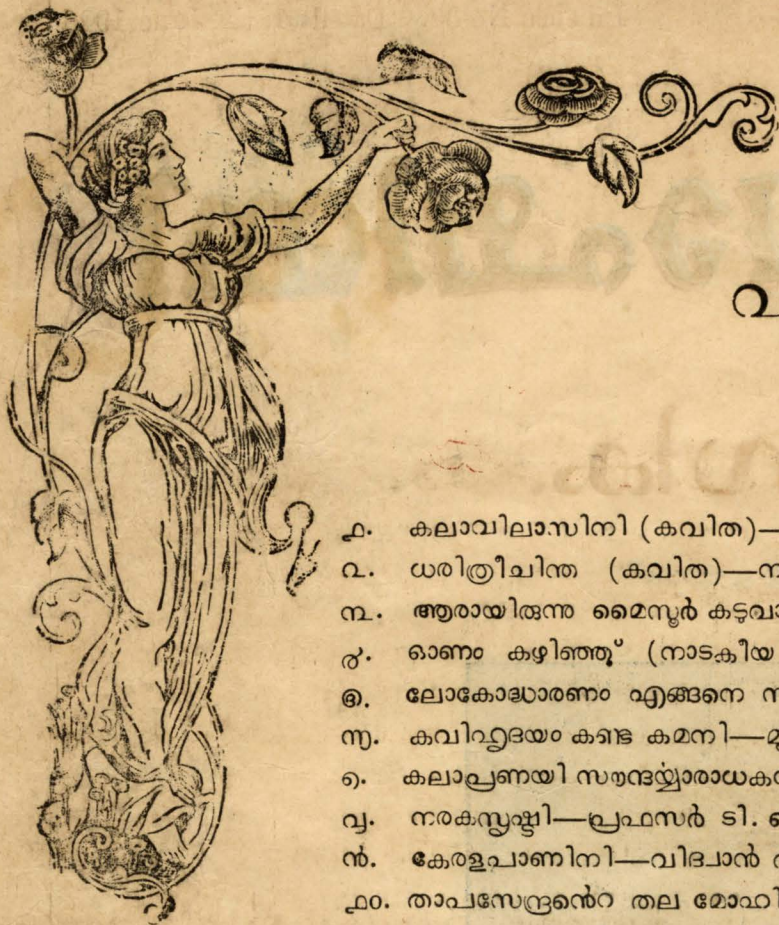 ൧. കലാവിലാസിനി (കവിത)—
൨. ധരിത്രീചിന്ത (കവിത)—
൩. ആരായിരുന്നു മൈസൂർ കടുവാ
൪. ഓണം കഴിഞ്ഞു് (നാടകീയ
൫. ലോകോദ്ധാരണം എങ്ങനെ
൬. കവിഹൃദയം കണ്ട കമനി—
൭. കലാപ്രണയി സൗന്ദൎയ്യാരാധകൻ
൮. നരകസൃഷ്ടി—പ്രഫസർ ടി.
൯. കേരളപാണിനി—വിദ്വാൻ
൧൦. താപസേന്ദ്രൻെറ തല മോഹി